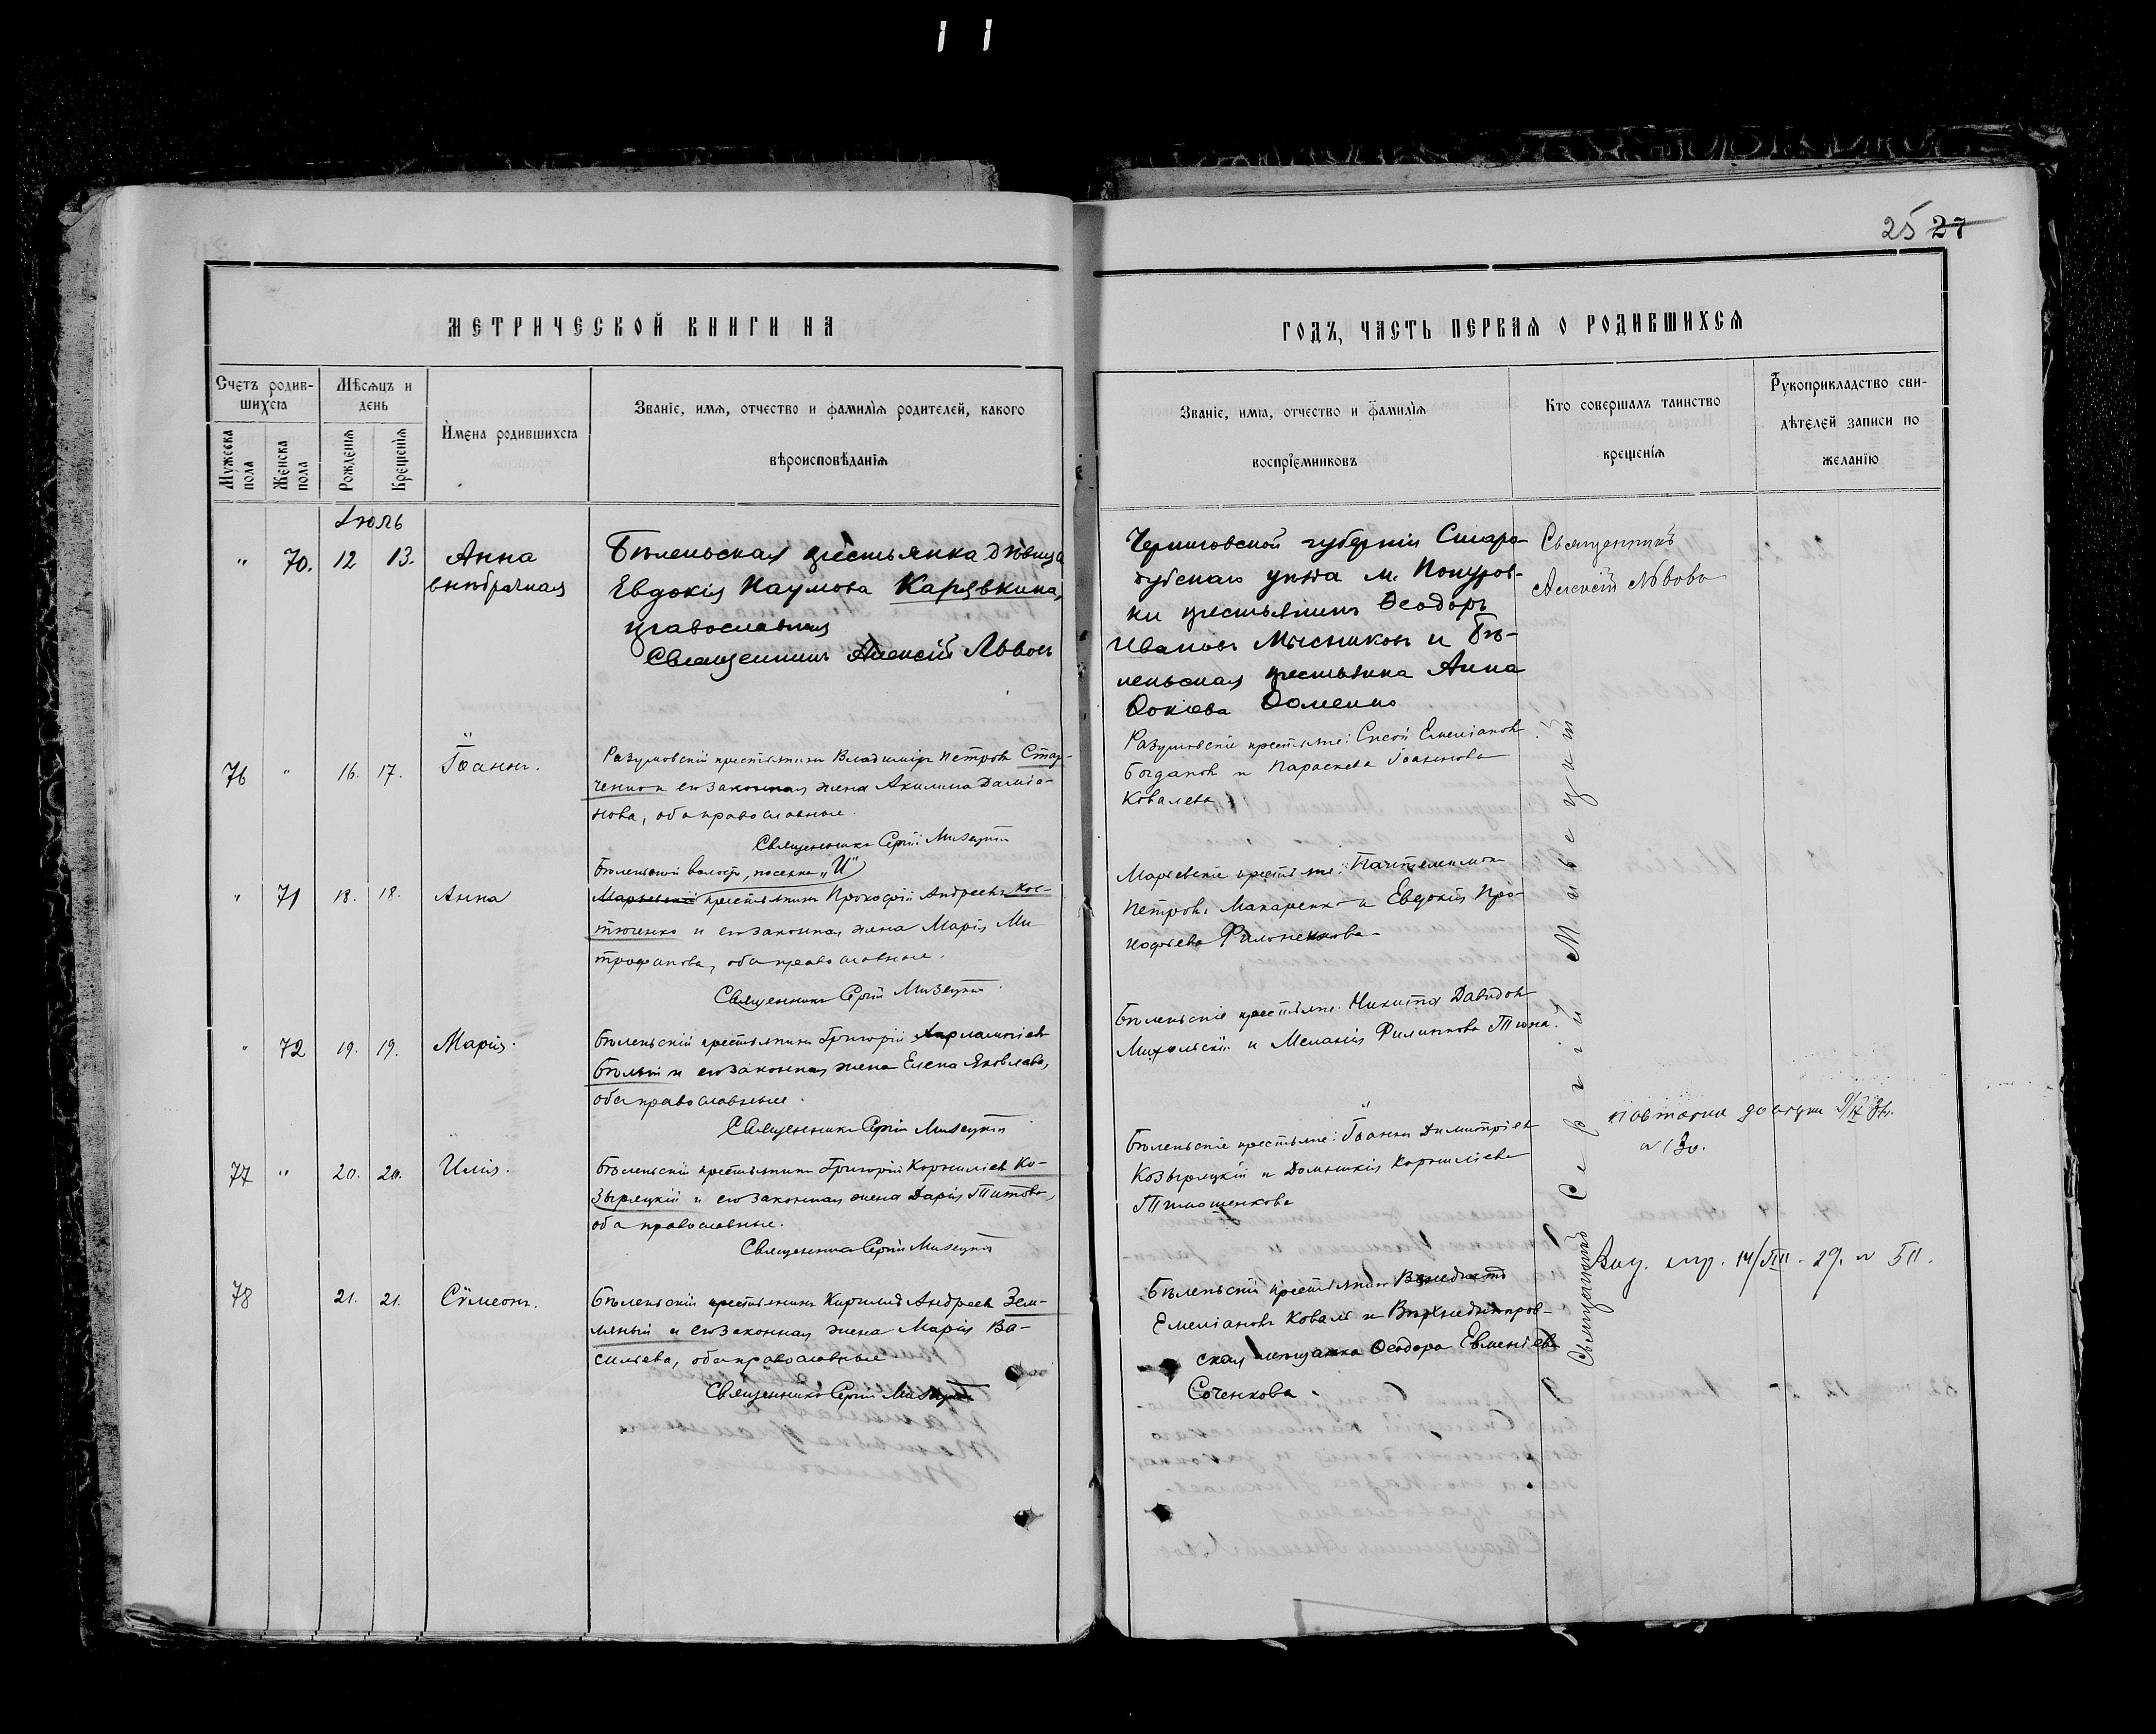 25 27
МЕТРИЧЕСКОЙ КНИГИ НА
ГОДЪ, ЧАСТЬ ПЕРВАЯ О РОДИВШИХСЯ
Счетъ родив-
шихся
Мѣсяцъ и
день
Имена родившихся
Званіе, имя, отчество и фамилія родителей, какого
вѣроисповѣданія
Мужеска
пола
Женска
пола
Рожденія
Крещенія
Званіе, имя, отчество и фамилія
воспріемниковъ
Кто совершалъ таинство
крещенія
Рукоприкладство сви-
дѣтелей записи по
желанію
Іюль
" 70. 12 13. Анна
внѣбрачная
Бѣленьская крестьянка дѣвица
Евдокія Наумова Карявкина,
православная
Священникъ Алексій Львовъ
Черниговской губерніи Старо-
дубскаго уѣзда м. Понуров-
ки крестьянинъ Ѳеодоръ
Ивановъ Мысниковъ и Бѣ-
леньская крестьянка Анна
Фокіева Фоменко
Священникъ
Алексій Львовъ
76 " 16. 17. Іоаннъ.
Разумовскій крестьянинъ Владиміръ Петровъ Стар-
ченко и его законная жена Акилина Даміа-
нова, оба православные.
Священникъ Сергій Мивецкій
Разумовскіе крестьяне: Сисой Емеліановъ
Богдановъ и Параскева Іоаннова
Ковалева
Бѣленьской волости, поселка „И"
" 71 18. 18. Анна
Марьевскій крестьянинъ Прокофій Андреевъ Кос-
тюченко и его законная жена Марія Ми
трофанова, оба православные.
Священникъ Сергій Мивецкій.
Марьевскіе крестьяне: Пантелеимонъ
Петровъ Макаренко и Евдокія Про-
кофьева Филоненкова
" 72 19. 19. Марія.
Бѣленьскій крестьянинъ Григорій Харлампіевъ
Бѣлый и его законная жена Елена Яковлева,
оба православные.
Священникъ Сергій Мивецкій
Бѣленьскіе крестьяне: Никита Давидовъ
и Меланія Филиппова
77 " 20. 20. Илія.
Бѣленьскій крестьянинъ Григорій Корниліевъ Ко-
зырецкій и его законная жена Дарія Титова,
оба православные.
Священникъ Сергій Мивецкій
Бѣленьскіе крестьяне: Іоаннъ Димитріевъ
Козырецкій и Домникія Корниліева
Тимошенкова
78 21. 21. Сѵмеонъ.
Бѣленьскій крестьянинъ Кириллъ Андреевъ Зем-
ляный и его законная жена Марія Ва-
сильева, оба православные
Священникъ Сергій Мивецкій
Бѣленьскій крестьянинъ Венедиктъ
Емеліановъ Коваль и Верхнеднѣпров-
ская мѣщанка Ѳеодора Евменіева
Соченкова.
Священникъ Сергій Мивецкій